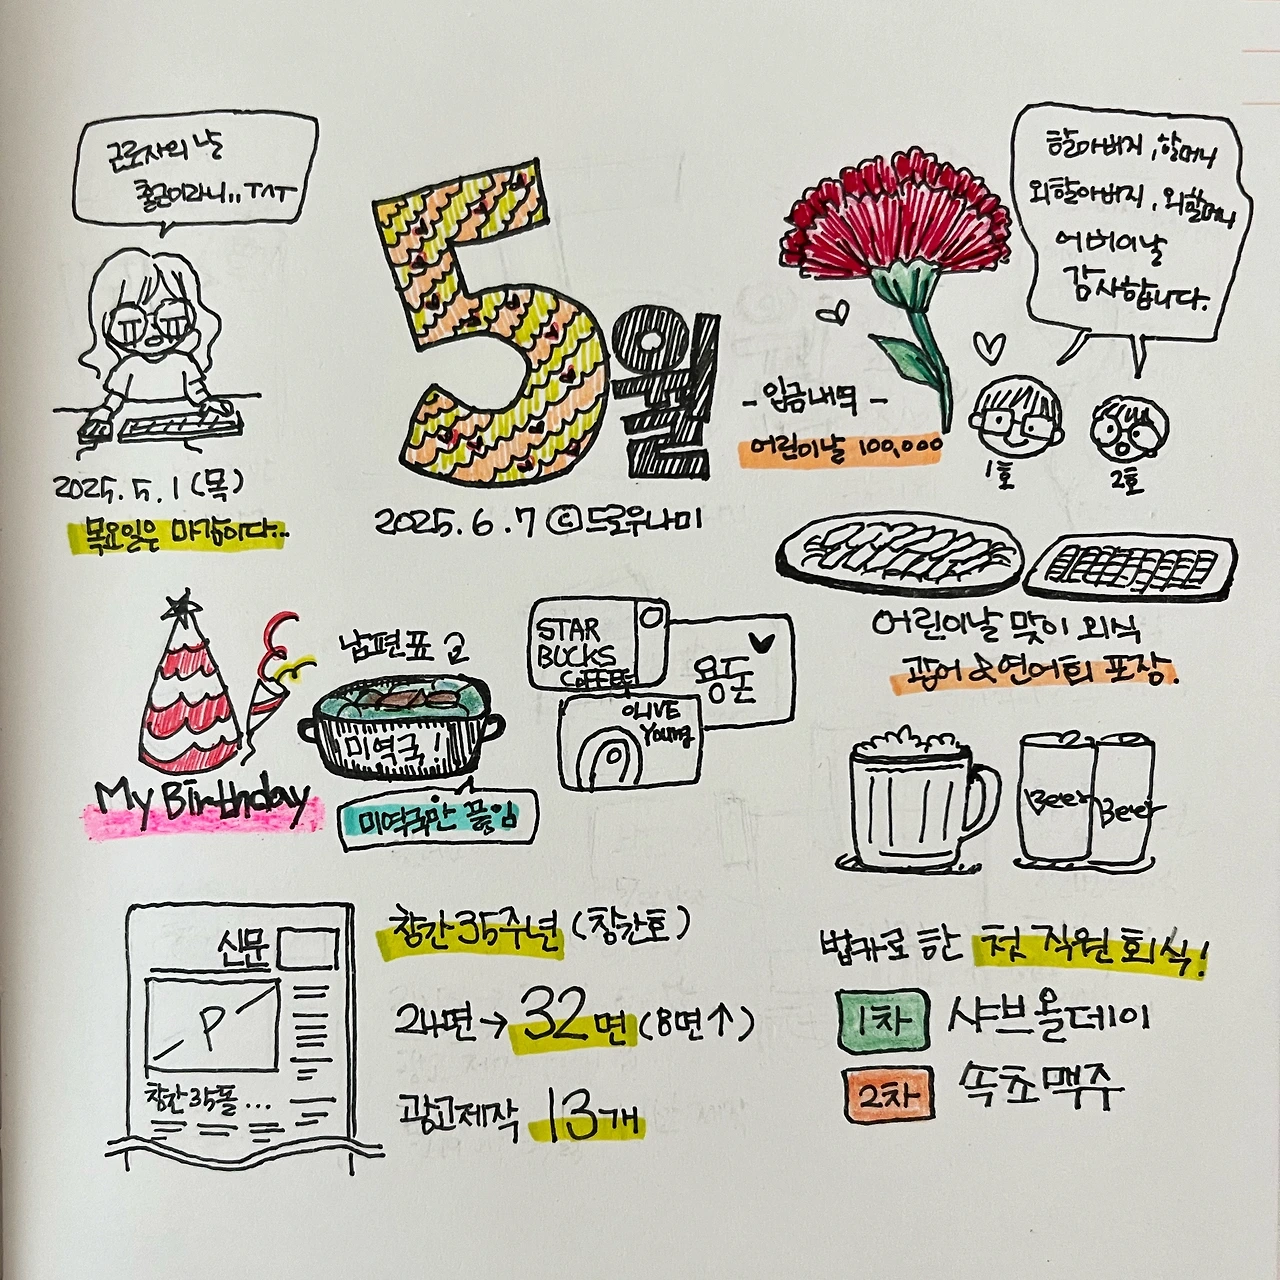 근로자의 날
출근이라니.. TAT
2025. 5. 1 (목)
목요일은 마감이다...
5월
2025. 6. 7 ⓒ드로우나미
- 입금내역 -
어린이날 100,000
할아버지, 할머니
외할아버지, 외할머니
어버이날
감사합니다.
1호
2호
어린이날 맞이 외식
광어&연어회 포장.
My Birthday
남편표
미역국!
미역국만 끓임
STAR
BUCKS
COFFEE
용돈
OLIVE
Young
Beer
Beer
신문
P
창간 35돌...
창간 35주년 (창간호)
24면→32면 (8면↑)
광고제작 13개
법카로 한 첫 직원 회식!
1차 샤브올데이
2차 속초맥주